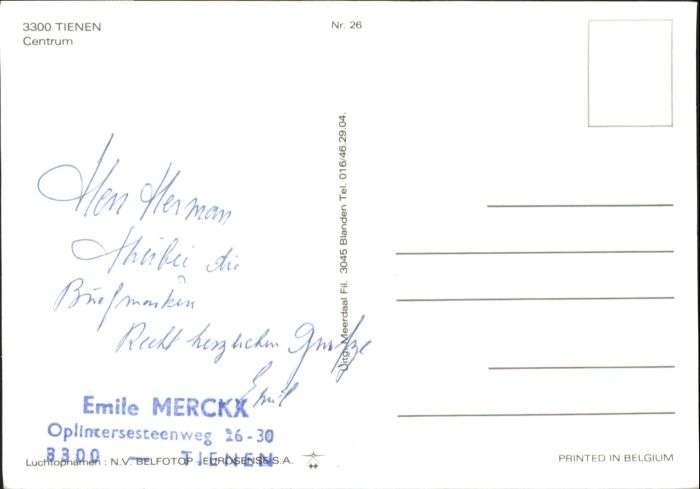 3300 TIENEN
Centrum
Nr. 26
Herr Herman
Hierbei die
Briefmarken
Recht herzlichen Grüße
Emil
Emile MERCKX
Oplintersesteenweg 26-30
3300 — TIENEN
Luchtopnamen : N.V. BELFOTOP - EUROSENSE S.A.
Uitg. Meerdaal Fil. 3045 Blanden Tel. 016/46.29.04.
PRINTED IN BELGIUM